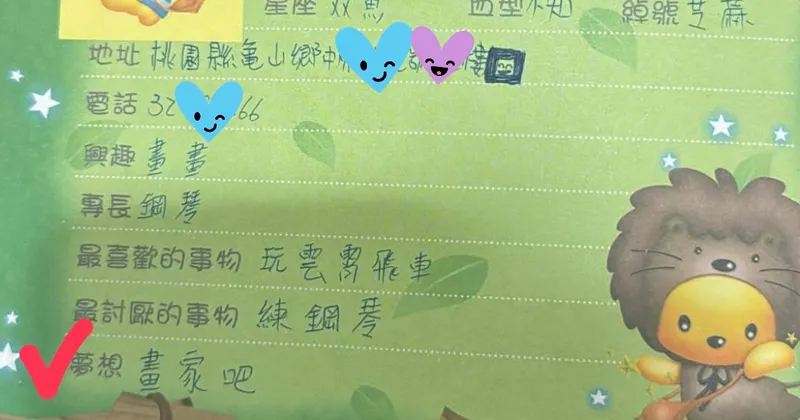 星座 双魚 血型 不知 綽號 芝麻
地址 桃園縣龜山鄉中 樓
電話 32 66
興趣 畫畫
專長 鋼琴
最喜歡的事物 玩雲霄飛車
最討厭的事物 練鋼琴
夢想 畫家吧